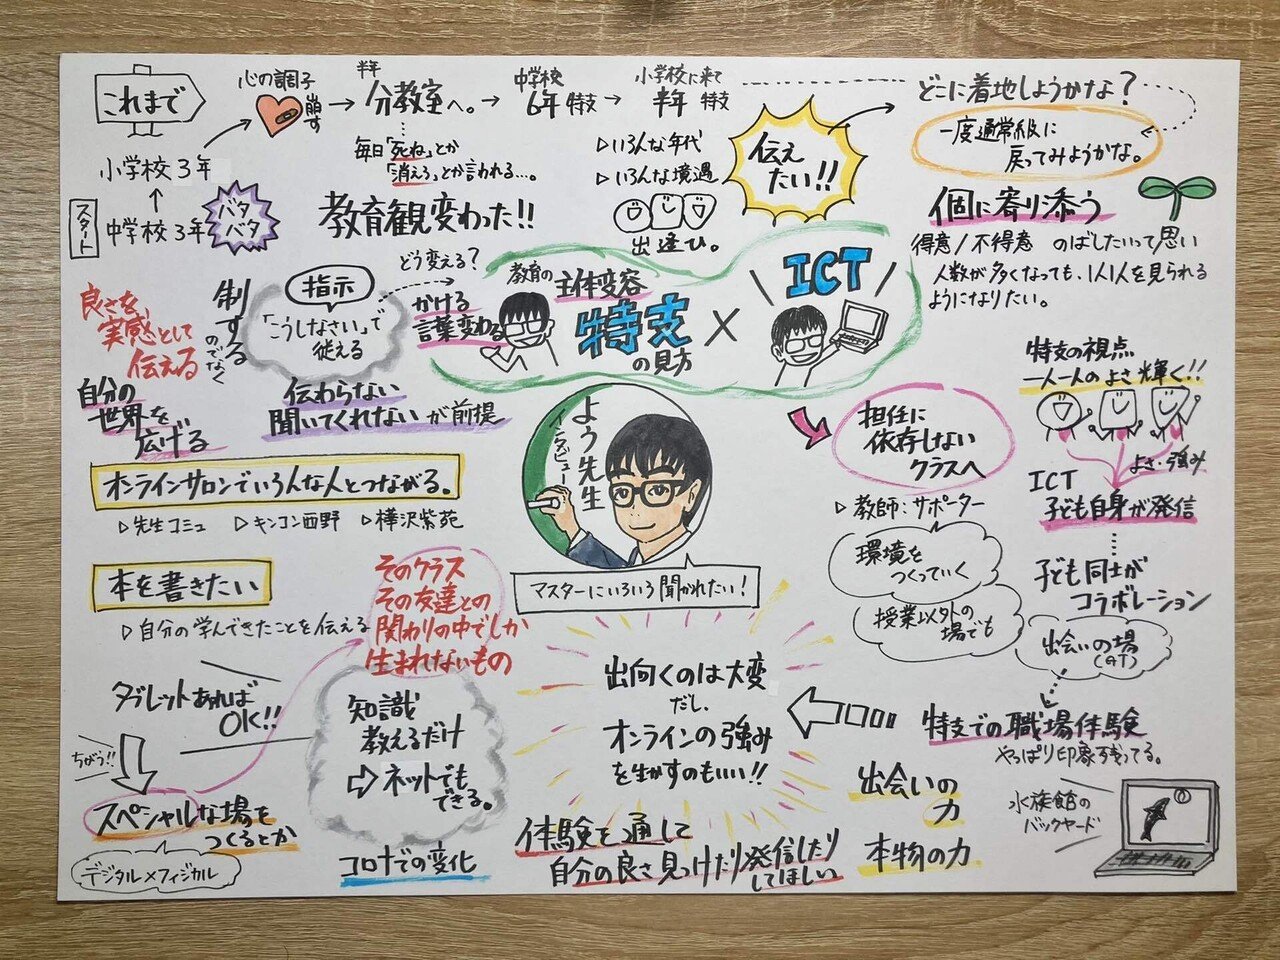 これまで
スタート
中学校3年
バタ
バタ
小学校3年
心の調子
崩す
半年
分教室へ。
毎日「死ね」とか
「消えろ」とか言われる…。
教育観変わった!!
中学校
6年 特支
小学校に来て
半年 特支
▷いろんな年代
▷いろんな境遇
出逢ひ。
伝え
たい!!
どこに着地しようかな?
一度通常級に
戻ってみようかな。
個に寄り添う
得意/不得意 のばしたいって思い
人数が多くなっても、1人1人を見られる
ようになりたい。
良さを、
実感として
伝える
制する
のでなく
指示
「こうしなさい」で
従える
どう変える?
かける
言葉変わる
教育の
主体変容
特支
の見方
×
ICT
自分の
世界を
広げる
伝わらない
聞いてくれないが前提
よう先生
インタビュー
マスターにいろいろ聞かれたい!
担任に
依存しない
クラスへ
▷教師:サポーター
環境を
つくっていく
授業以外の
場でも
特支の視点
一人一人のよさ輝く!!
よさ・強み
ICT
子ども自身が発信
子ども同士が
コラボレーション
出会いの場
(GT)
特支での職場体験
やっぱり印象残ってる。
水族館の
バックヤード
オンラインサロンでいろんな人とつながる。
▷先生コミュ ▷キンコン西野 ▷樺沢紫苑
本を書きたい
▷自分の学んできたことを伝える
そのクラス
その友達との
関わりの中でしか
生まれないもの
タブレットあれば
OK!!
ちがう!!
スペシャルな場を
つくるとか
デジタル×フィジカル
知識
教えるだけ
⇨ネットでも
できる。
コロナでの変化
出向くのは大変
だし、
オンラインの強み
を生かすのもいい!!
体験を通して
自分の良さ見つけたり発信したり
してほしい
出会いの
力
本物の力